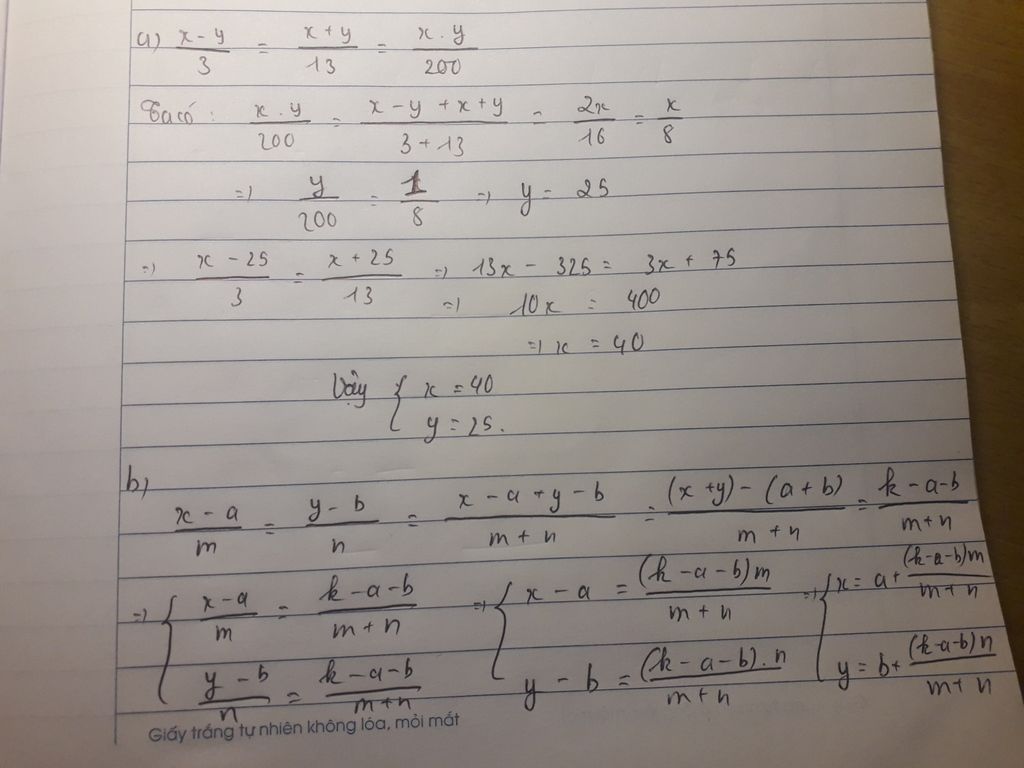 a) (x - y)/3 = (x + y)/13 = (x . y)/200
Ta có : (x . y)/200 = (x - y + x + y)/(3 + 13) = 2x/16 = x/8
=> y/200 = 1/8 => y = 25
=> (x - 25)/3 = (x + 25)/13 => 13x - 325 = 3x + 75
=> 10x = 400
=> x = 40
Vậy { x = 40
y = 25.
b)
(x - a)/m = (y - b)/n = (x - a + y - b)/(m + n) = ((x + y) - (a + b))/(m + n) = (k - a - b)/(m + n)
=> { (x - a)/m = (k - a - b)/(m + n) => { x - a = ((k - a - b)m)/(m + n) => { x = a + ((k - a - b)m)/(m + n)
(y - b)/n = (k - a - b)/(m + n) y - b = ((k - a - b) . n)/(m + n) y = b + ((k - a - b)n)/(m + n)
Giấy trắng tự nhiên không lóa, mỏi mắt